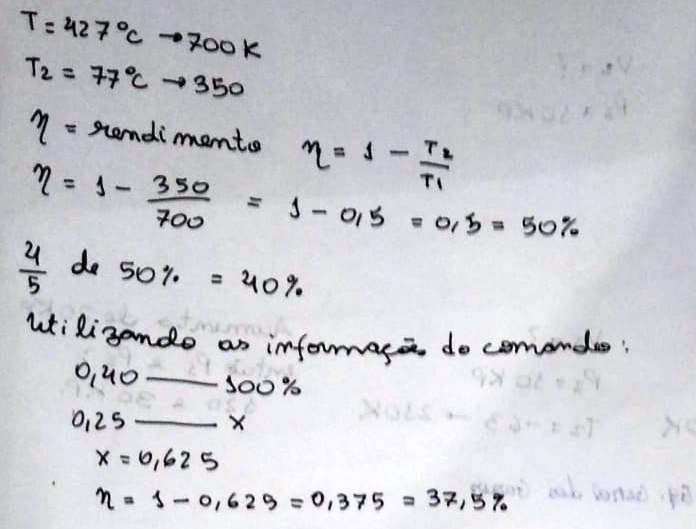 T = 427°C → 700 K
T2 = 77°C → 350
η = rendimento η = 1 - T2/T1
η = 1 - 350/700 = 1 - 0,5 = 0,5 = 50%
4/5 de 50% = 40%
Utilizando as informação do comando:
0,40 —— 100%
0,25 —— x
x = 0,625
η = 1 - 0,625 = 0,375 = 37,5%